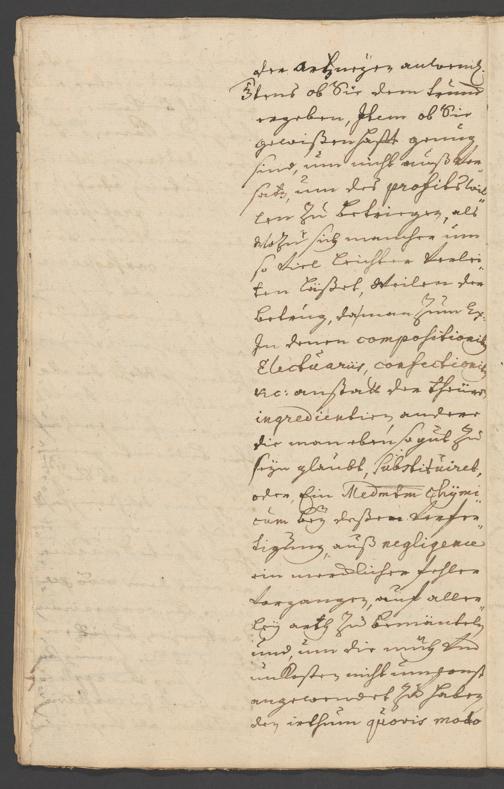 der Artzneyen anwend.
3tens ob Sie dem trunk
ergeben, Item ob Sie
gewißenhafft genug
sind, um nicht auß Vor
satz, um des profits wil
len zu betriegen, als
wozu sich mancher um
so Viel leichter Verlei
ten läßet, weilen der
betrug, da man zum Ex:
In denen compositionib
Electuariis, confectionib
&c: anstatt der theuren
ingredientien, andere
die man eben so gut zu
seyn glaubt, substituiret,
oder, Ein Medmtm chymi
cum bey deßen Verfer
tigung, auß negligence
ein mercklicher fehler
Vorgangen, auf aller
ley arth zu bemänteln
und, um die müh und
unkosten nicht umsonst
angewendet zu haben
den irthum quovis modo